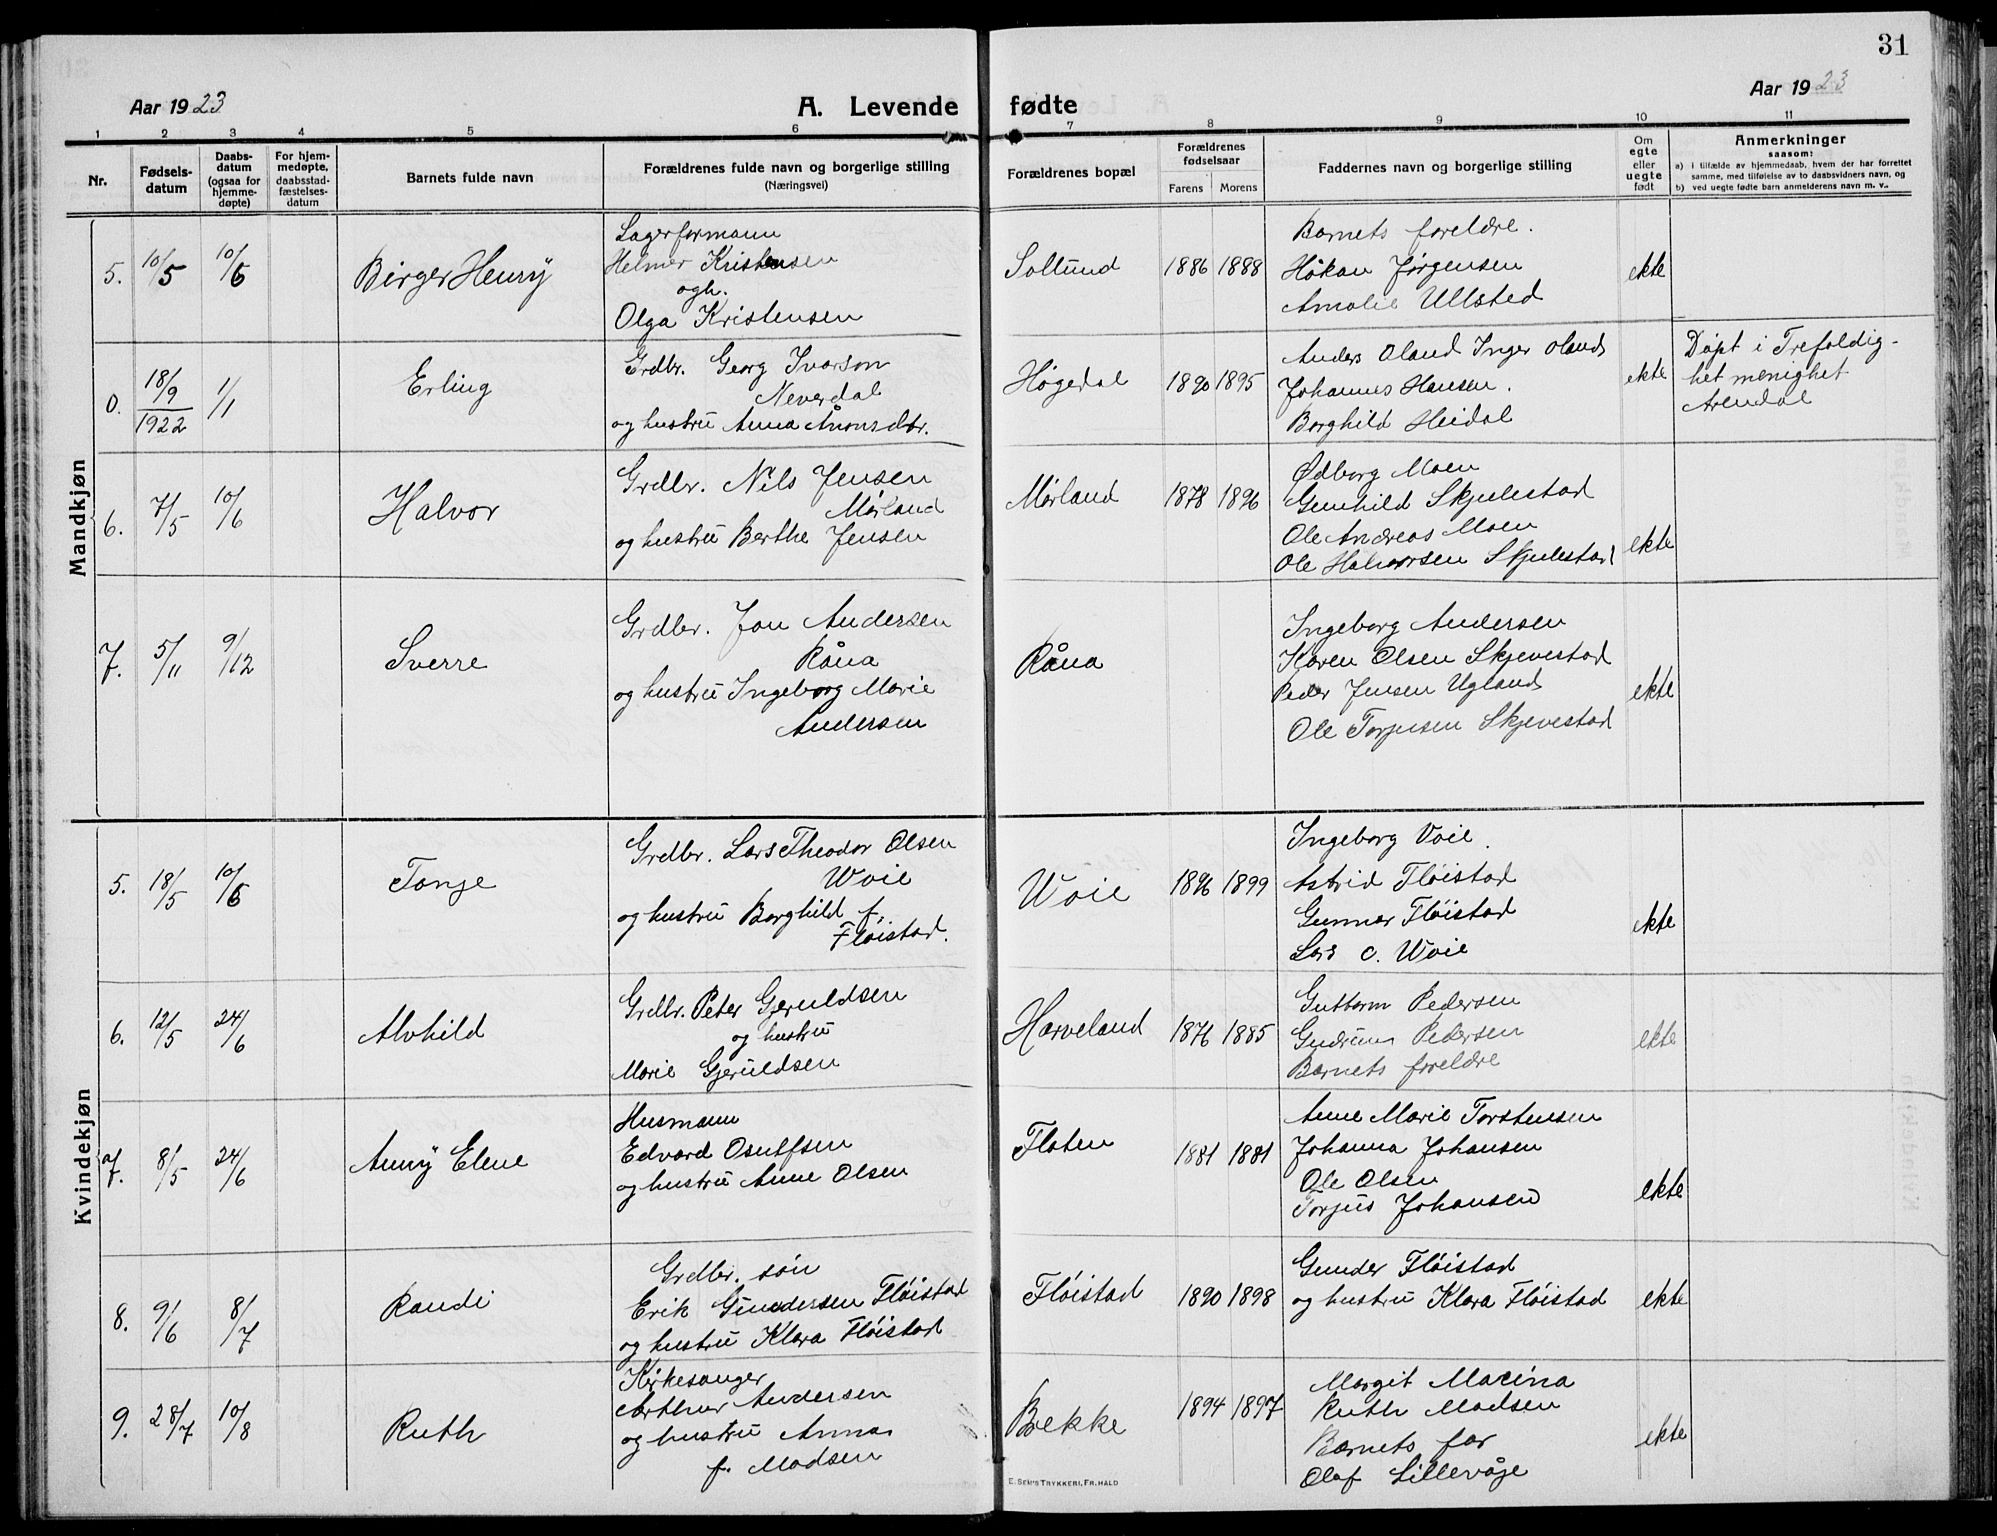 31
Aar 1923
A. Levende fødte
Aar 1923
1 2 3 4 5 6 7 8 9 10 11
Nr.
Fødsels-
datum
Daabs-
datum
(ogsaa for
hjemme-
døpte)
For hjem-
medøpte,
daabsstad-
fæstelses-
datum
Barnets fulde navn
Forældrenes fulde navn og borgerlige stilling
(Næringsvei)
Forældrenes bopæl
Forældrenes
fødselsaar
Farens Morens
Faddernes navn og borgerlige stilling
Om
egte
eller
uegte
født
Anmerkninger
saasom:
a) i tilfælde av hjemmedaab, hvem der har forrettet
samme, med tilføielse av to daabsvidners navn, og
b) ved uegte fødte barn anmelderens navn m. v..
Mandkjøn
5. 10/5 10/6 Birger Henry
Lagerformann
Helmer Kristensen
ogh.
Olga Kristensen
Sollund 1886 1888
Barnets foreldre.
Håkan Jørgensen
Amalie Ullsted
ekte
0. 18/9 1922 1/1 Erling
Grdbr. Georg Ivarson
Neverdal
og hustru Anna Aronsdtr.
Høgedal 1890 1895
Anders Oland Inger Oland
Johannes Hansen.
Borghild Heidal
ekte
Døpt i Trefoldig-
het menighet
Arendal
6. 7/5 10/6 Halvor
Grdbr. Nils Jensen
Mørland
og hustru Berthe Jensen
Mørland 1878 1896
Ødborg Moen
Gunhild Skjulestad
Ole Andreas Moen
Ole Halvorsen Skjulestad
ekte
7. 5/11 9/12 Sverre
Grdbr. Jon Andersen
Råna
og hustru Ingeborg Marie
Andersen
Råna
Ingeborg Andersen
Karen Olsen Skjevestad
Peder Jensen Ugland
Ole Torjusen Skjevestad
ekte
Kvindekjøn
5. 18/5 10/6 Tonje
Grdbr. Lars Theodor Olsen
Woie
og hustru Borghild f.
Fløistad.
Woie 1896 1899
Ingeborg Voie.
Astrid Fløistad
Gunnar Fløistad
Lars O. Woie
ekte
6. 12/5 24/6 Alvhild
Grdbr. Peter Gjeruldsen
og hustru
Marie Gjeruldsen
Harveland 1876 1885
Guttorm Pedersen
Gudrun Pedersen
Barnets foreldre
ekte
7. 8/5 24/6 Anny Elene
Husmann
Edvard Osulfsen
og hustru Anne Olsen
Flaten 1881 1881
Anne Marie Torstensen
Johanna Johansen
Ole Olsen
Torjus Johansen
ekte
8. 9/6 8/7 Randi
Grdbr. søn
Erik Gundersen Fløistad
og hustru Klara Fløistad
Fløistad 1890 1898
Gunder Fløistad
og hustru Klara Fløistad
ekte
9. 28/7 10/8 Ruth
Kirkesanger
Arthur Andersen
og hustru Anna
f. Madsen
Bekke 1894 1897
Margit Marina
Ruth Madsen
Barnets far
Olaf Lillevåje
ekte
E. SEM'S TRYKKERI, FR.HALD